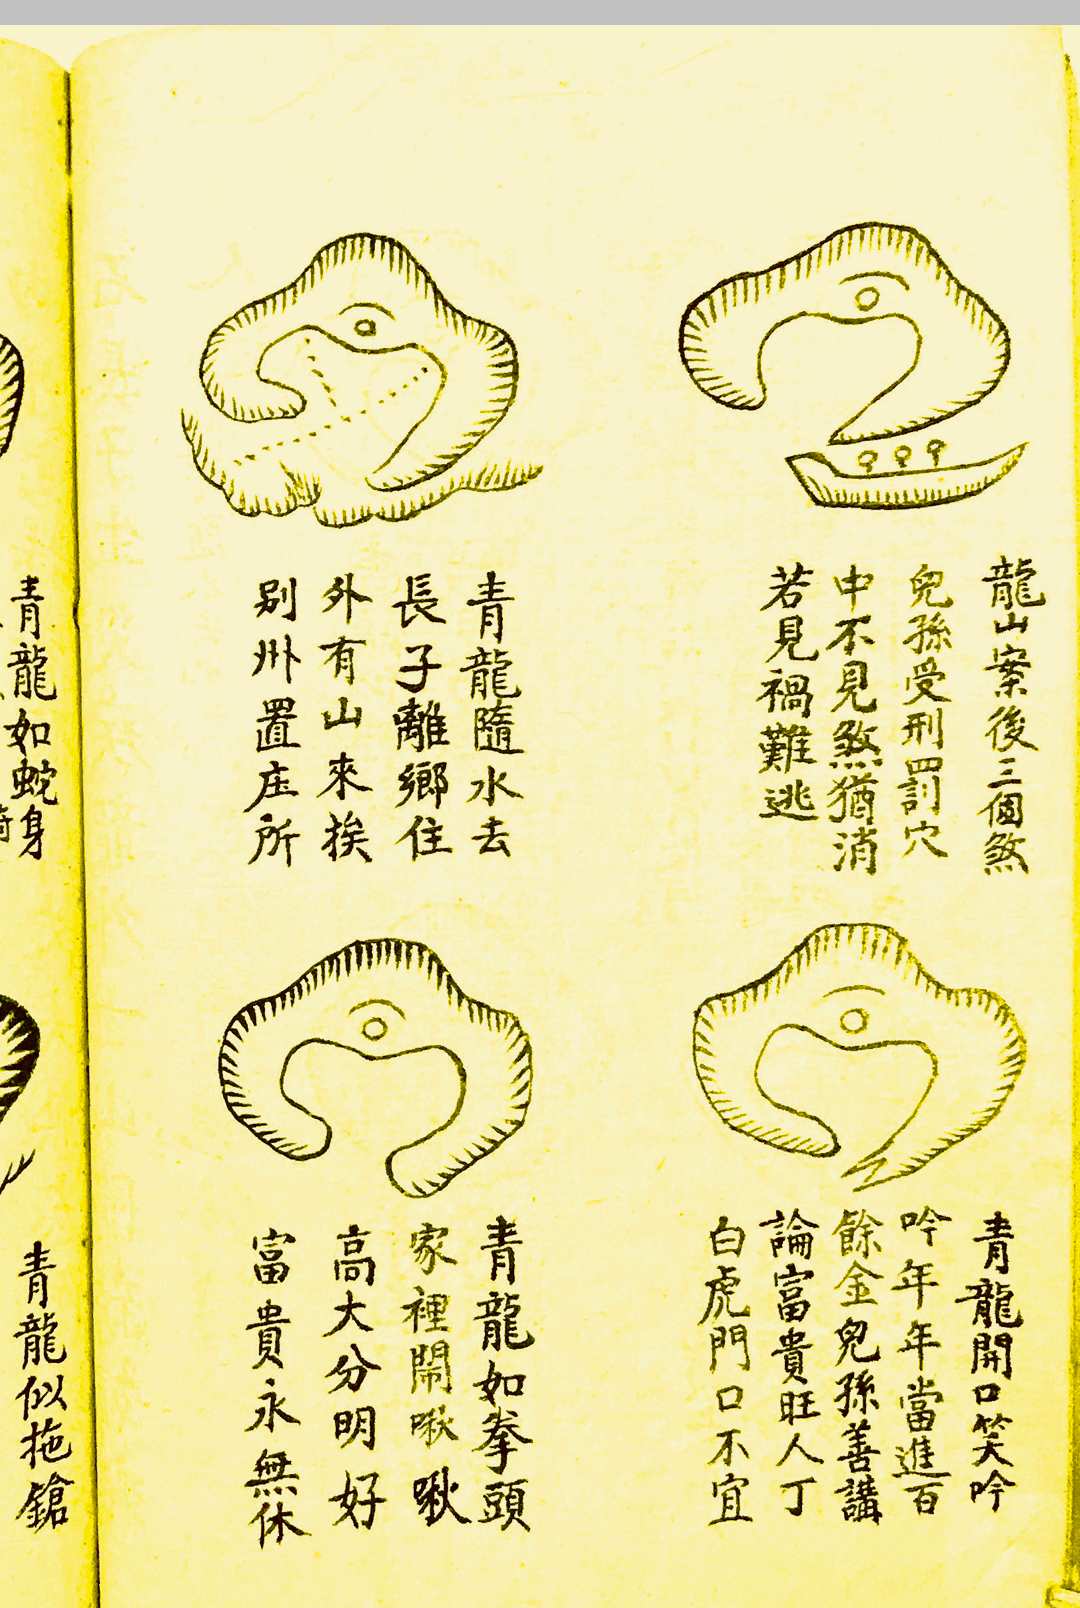 龍山案後三個煞
兒孫受刑罰穴
中不見煞猶消
若見禍難逃
青龍隨水去
長子離鄉住
外有山來挨
別州置庄所
青龍開口笑吟
吟年年當進百
餘金兒孫善講
論富貴旺人丁
白虎門口不宜
青龍如拳頭
家裡鬧啾啾
高大分明好
富貴永無休
青龍如蛇身
青龍似拖鎗